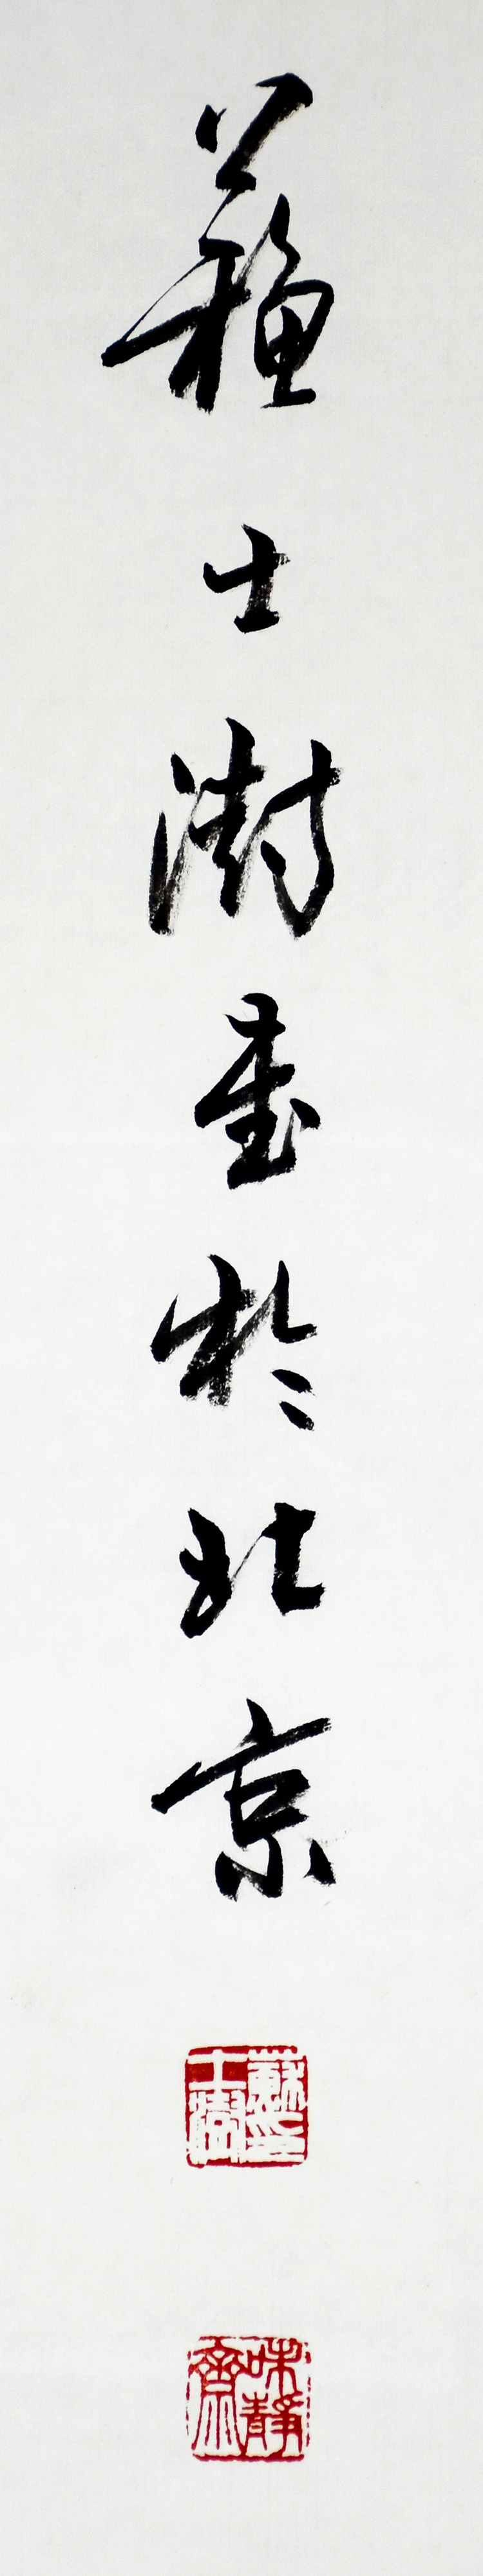 蘇士澍書於北京
蘇士澍印
味靜齋